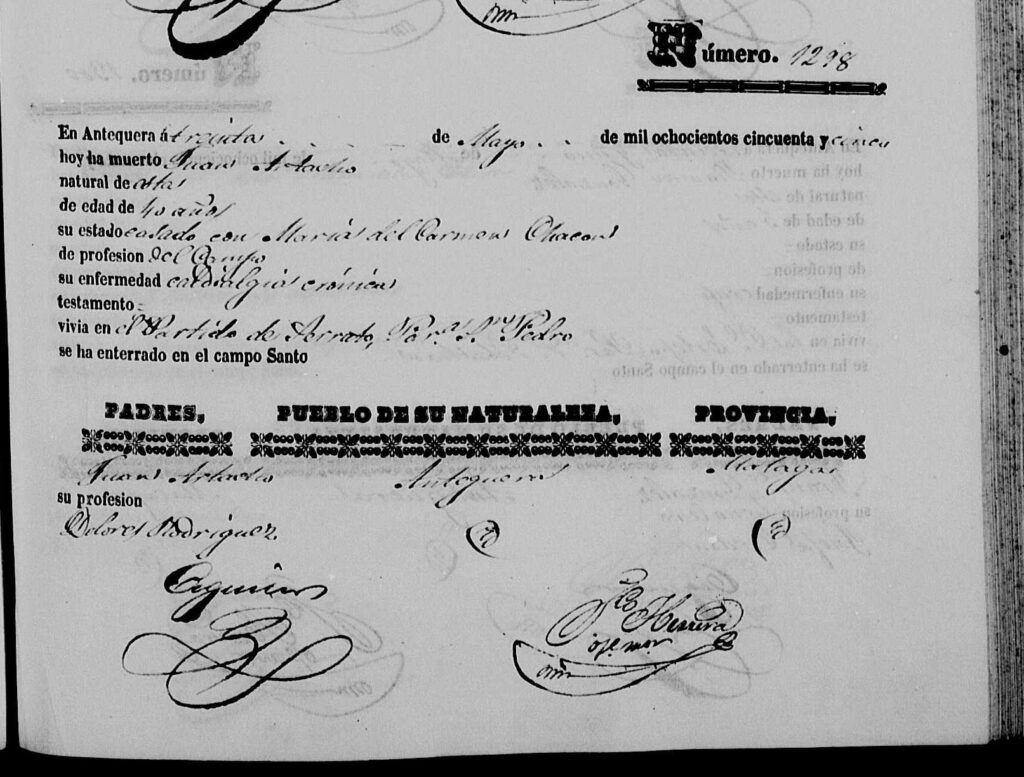 Número. 1298
En Antequera á treinta de Mayo de mil ochocientos cincuenta y cinco
hoy ha muerto. Juan Artacho
natural de esta
de edad de 40 años
su estado casado con María del Carmen Chacon
de profesion del Campo
su enfermedad cardialgia crónica
testamento
vivia en el Partido de Serrato, Par.ª S.n Pedro
se ha enterrado en el campo Santo
PADRES, PUEBLO DE SU NATURALEZA, PROVINCIA,
Juan Artacho Antequera Malaga
su profesion
Dolores Rodriguez
Herrera